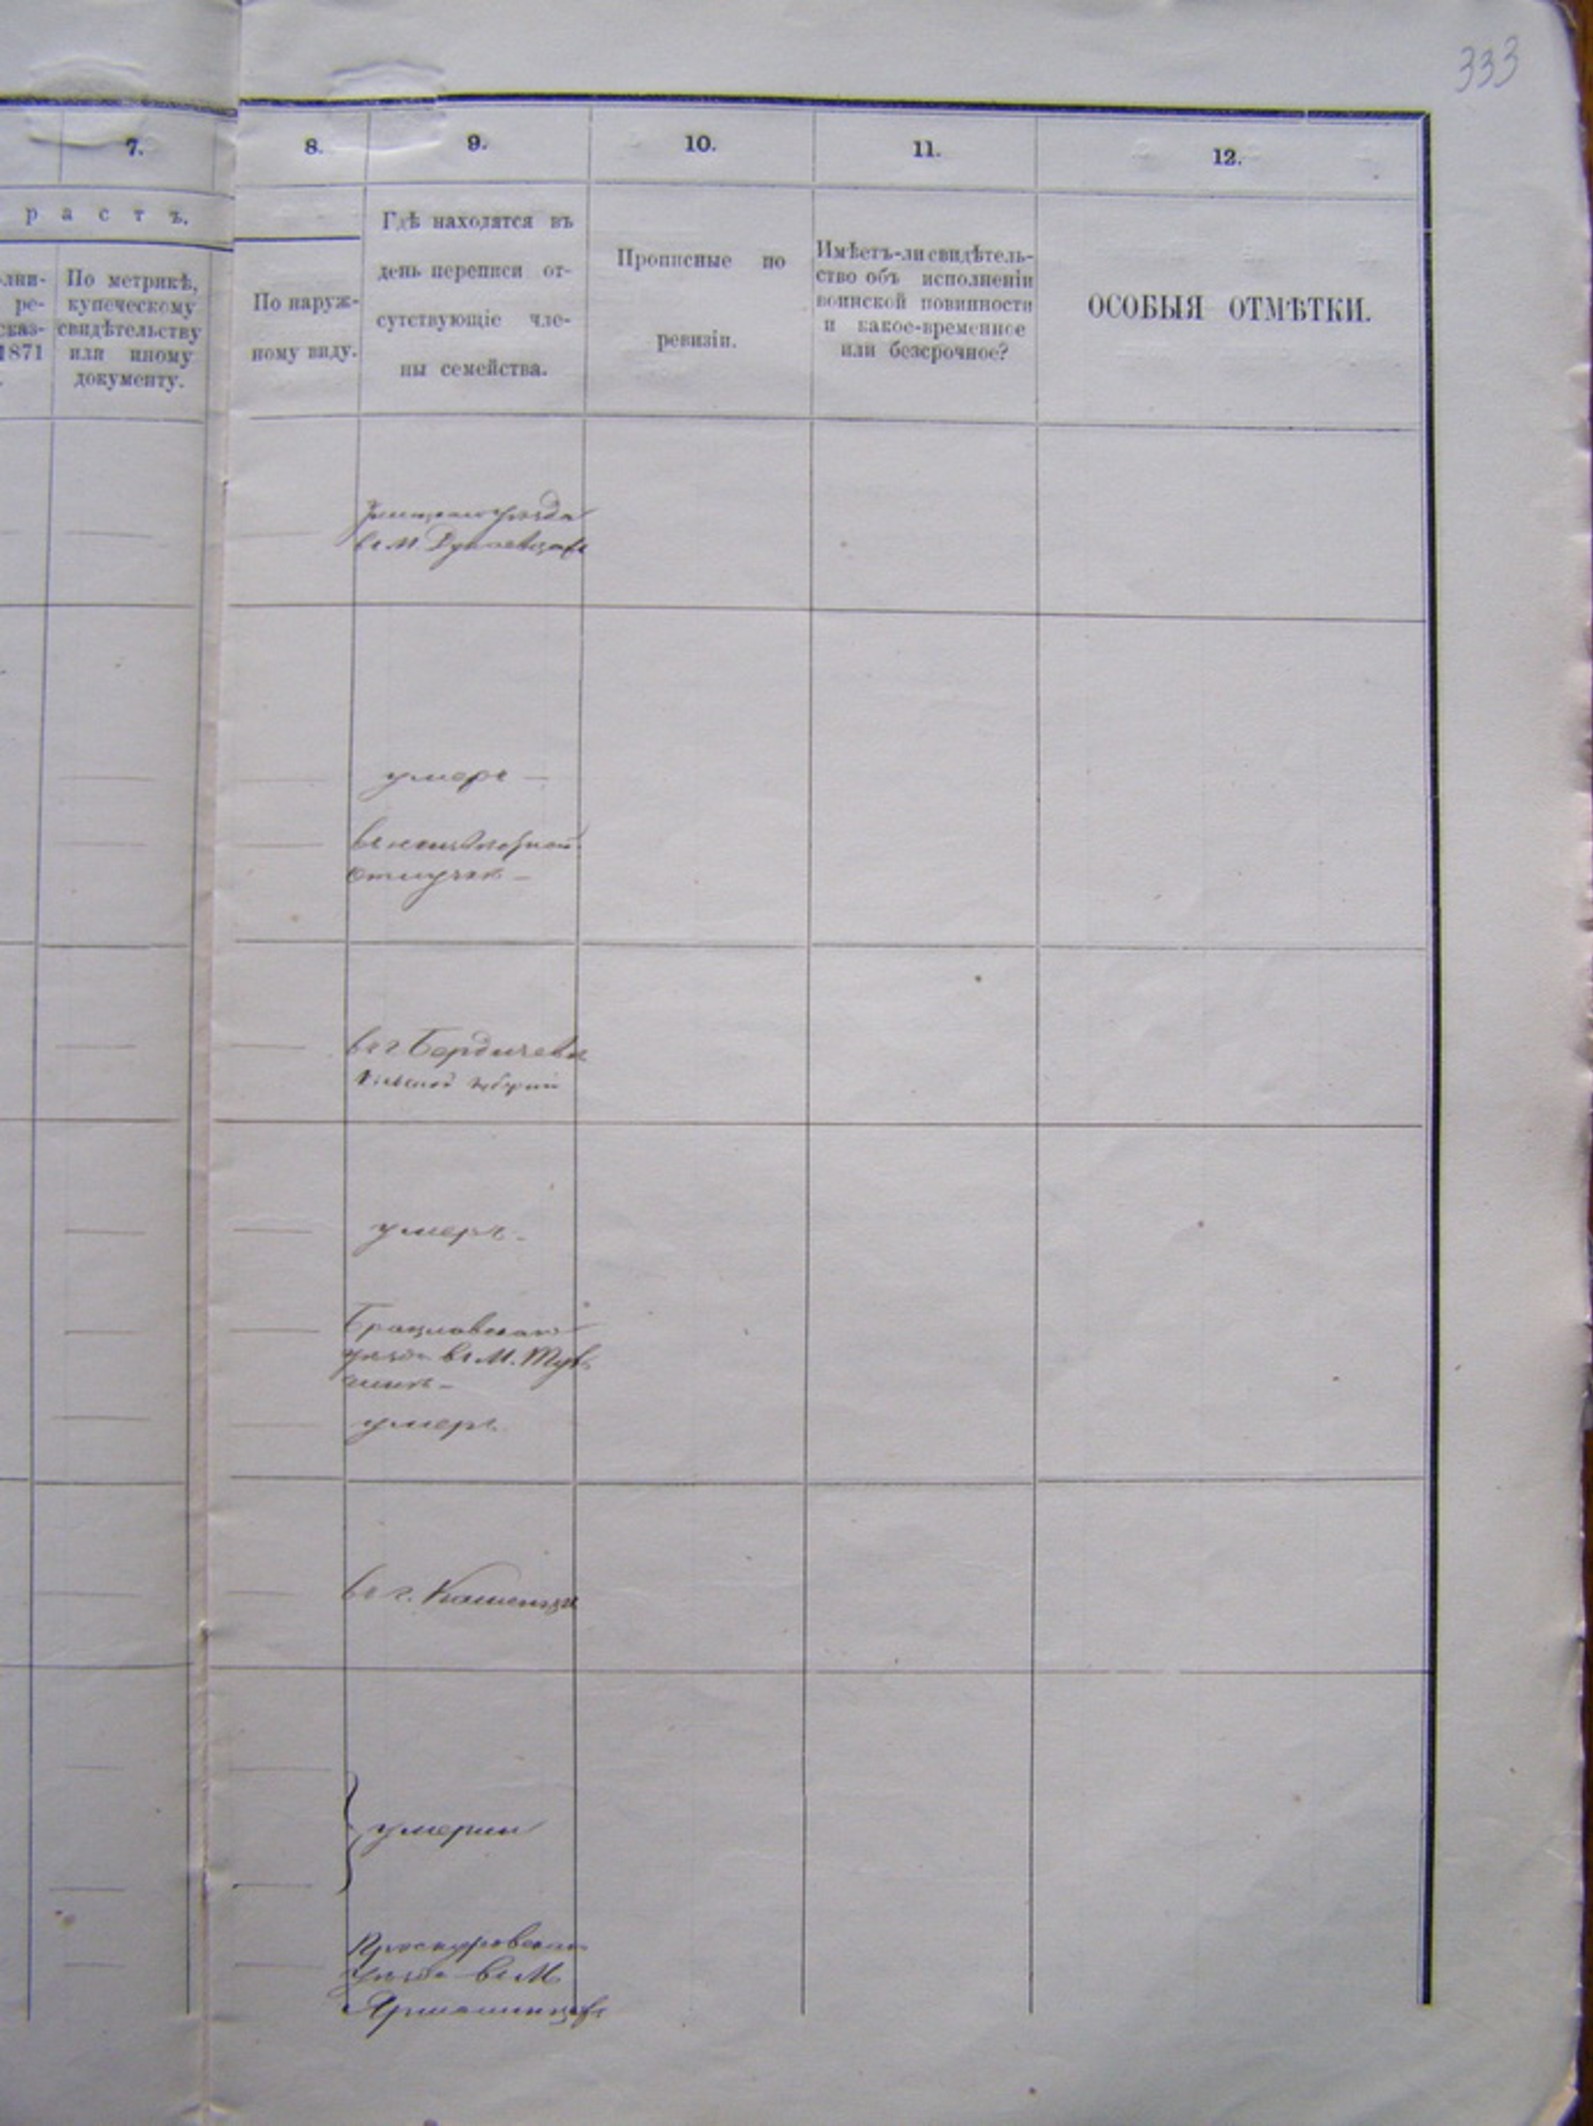 333
7.
8.
9.
10.
11.
12.
р а с т ъ.
лни-
ре-
сказ-
1871
По метрикѣ,
купеческому
свидѣтельству
или иному
документу.
По наруж-
ному виду.
Гдѣ находятся въ
день переписи от-
сутствующіе чле-
ны семейства.
Прописные по
ревизіи.
Имѣетъ-ли свидѣтель-
ство объ исполненіи
воинской повинности
и какое-временное
или безсрочное?
ОСОБЫЯ ОТМѢТКИ.
уѣзда
въ М Дунаевцахъ
умеръ —
въ неизвѣстной
отлучкѣ —
въ г Бердичевѣ
Кіевской губерніи
умеръ.
Брацлавскаго
уѣзда въ М. Туль
чинѣ —
умеръ.
въ г. Каменцѣ
умерли
Проскуровскаго
уѣзда въ М
Ярмолинцахъ